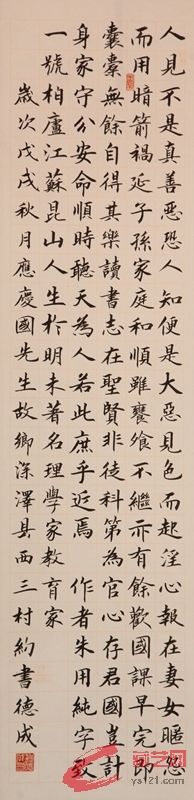 人見不是真善惡恐人知便是大惡見色而起淫心報在妻女匿怨
而用暗箭禍延子孫家庭和順雖饔飧不繼亦有餘歡國課早完即
囊橐無餘自得其樂讀書志在聖賢非徒科第為官心存君國豈計
身家守分安命順時聽天為人若此庶乎近焉 作者朱用純字致
一號柏廬江蘇昆山人生於明末著名理學家教育家
歲次戊戌秋月應慶國先生故鄉深澤县西三村約書德成
ys121.com